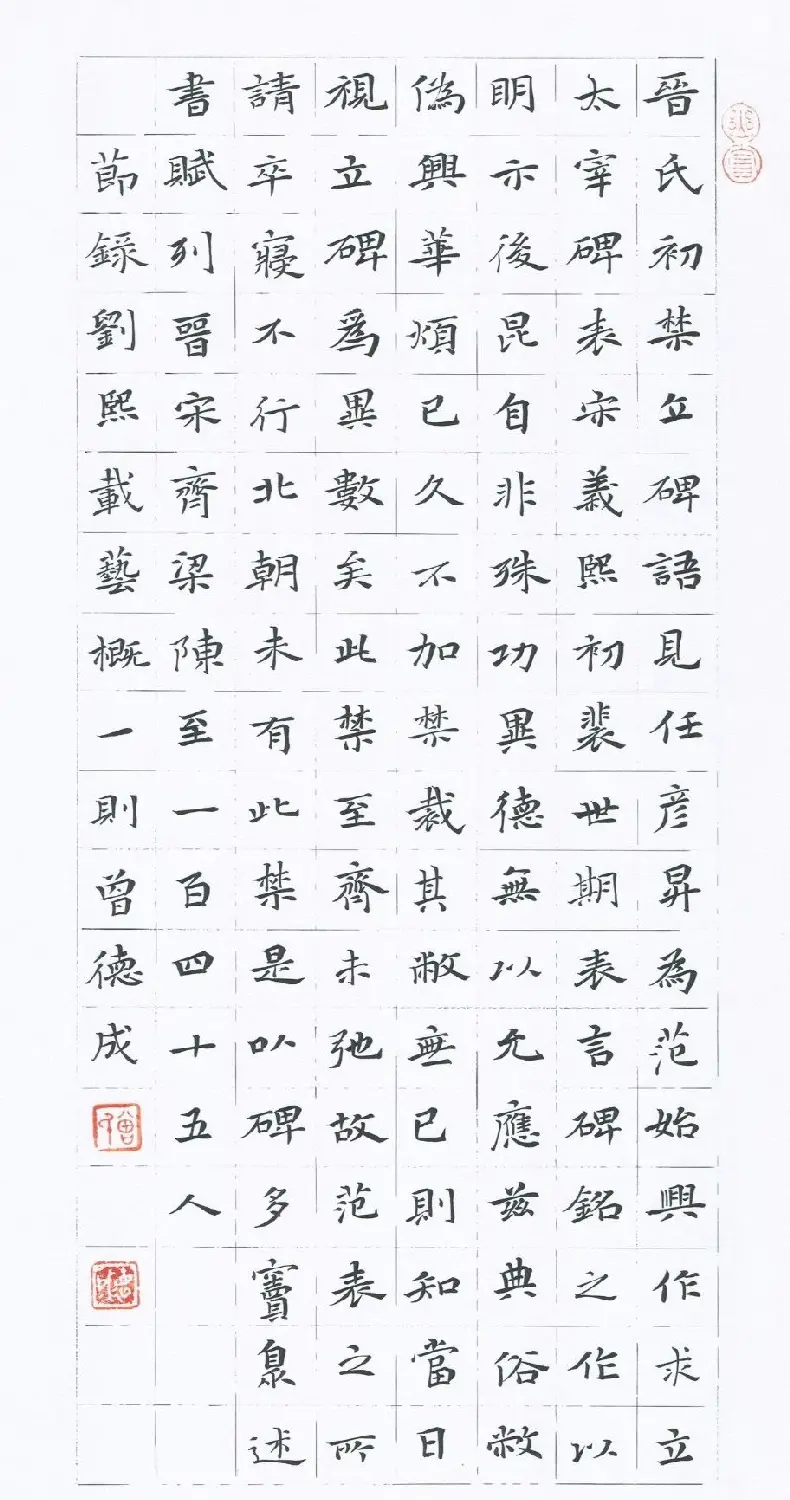 晉氏初禁立碑語見任彦昇為范始興作求立
太宰碑表宋義熙初裴世期表言碑銘之作以
明示後昆自非殊功異德無以允應茲典俗敝
偽興華煩已久不加禁裁其敝無已則知當日
視立碑爲異數矣此禁至齊未弛故范表之所
請卒寢不行北朝未有此禁是以碑多竇臮述
書賦列晉宋齊梁陳至一百四十五人
節錄劉熙載藝概一則曾德成